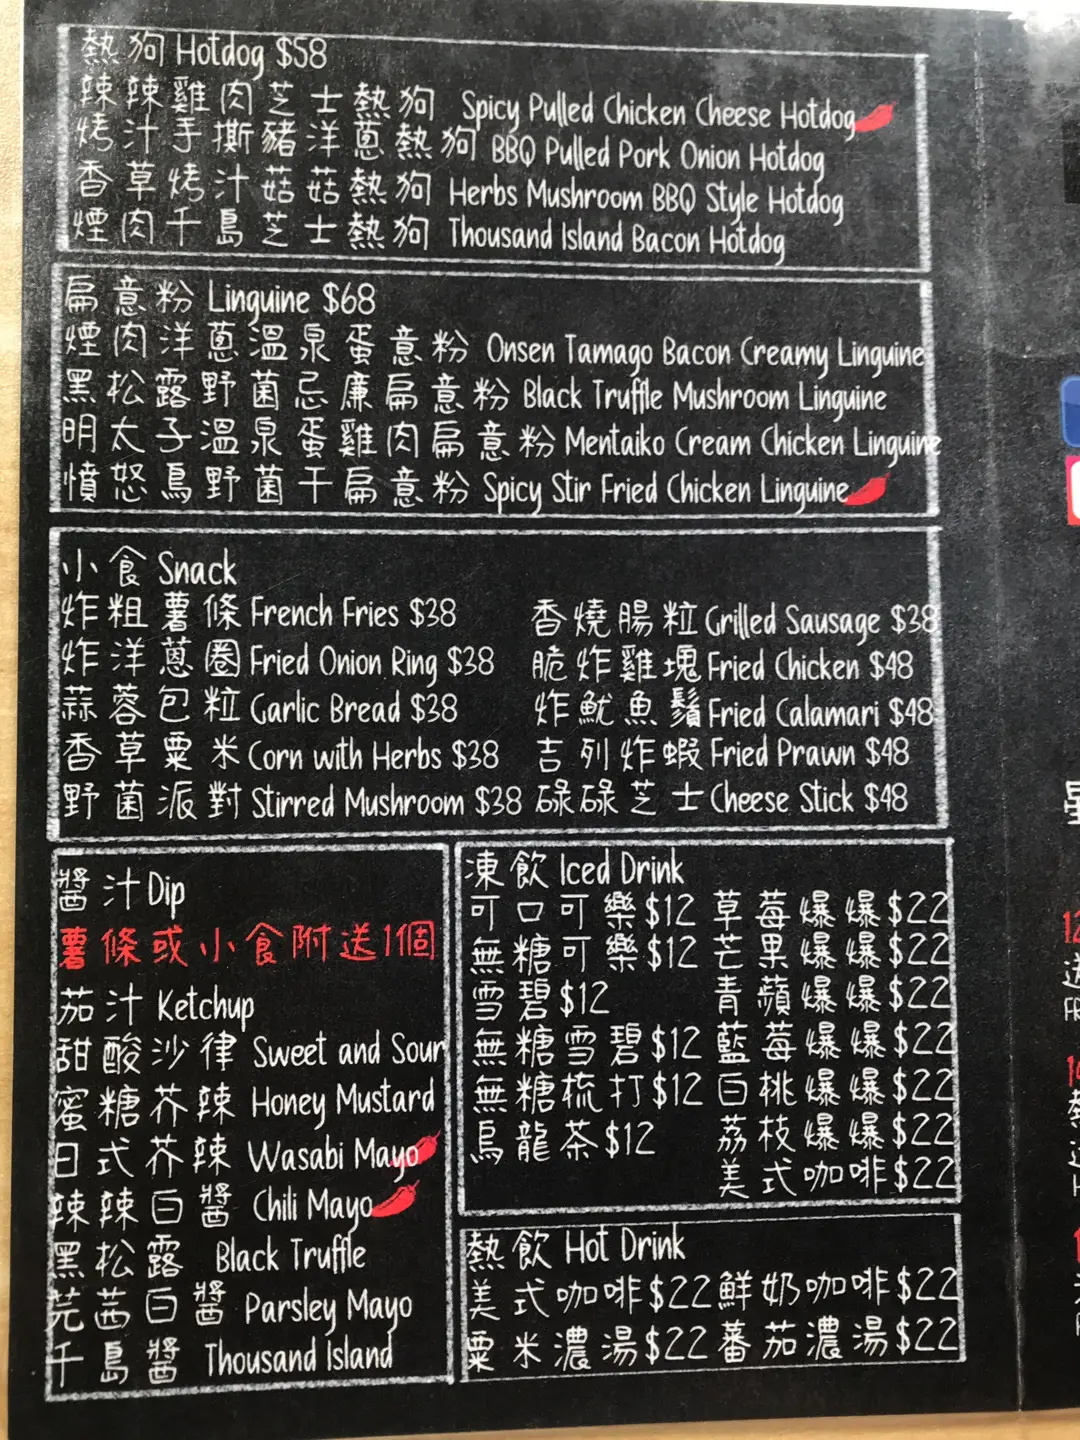 熱狗 Hotdog $58
辣辣雞肉芝士熱狗 Spicy Pulled Chicken Cheese Hotdog
烤汁手撕豬洋蔥熱狗 BBQ Pulled Pork Onion Hotdog
香草烤汁菇菇熱狗 Herbs Mushroom BBQ Style Hotdog
煙肉千島芝士熱狗 Thousand Island Bacon Hotdog
扁意粉 Linguine $68
煙肉洋蔥溫泉蛋意粉 Onsen Tamago Bacon Creamy Linguine
黑松露野菌忌廉扁意粉 Black Truffle Mushroom Linguine
明太子溫泉蛋雞肉扁意粉 Mentaiko Cream Chicken Linguine
憤怒鳥野菌干扁意粉 Spicy Stir Fried Chicken Linguine
小食 Snack
炸粗薯條 French Fries $38
炸洋蔥圈 Fried Onion Ring $38
蒜蓉包粒 Garlic Bread $38
香草粟米 Corn with Herbs $38
野菌派對 Stirred Mushroom $38
香燒腸粒 Grilled Sausage $38
脆炸雞塊 Fried Chicken $48
炸魷魚鬚 Fried Calamari $48
吉列炸蝦 Fried Prawn $48
碌碌芝士 Cheese Stick $48
醬汁 Dip
薯條或小食附送1個
茄汁 Ketchup
甜酸沙律 Sweet and Sour
蜜糖芥辣 Honey Mustard
日式芥辣 Wasabi Mayo
辣辣白醬 Chili Mayo
黑松露 Black Truffle
芫茜白醬 Parsley Mayo
千島醬 Thousand Island
凍飲 Iced Drink
可口可樂 $12
無糖可樂 $12
雪碧 $12
無糖雪碧 $12
無糖梳打 $12
烏龍茶 $12
草莓爆爆 $22
芒果爆爆 $22
青蘋爆爆 $22
藍莓爆爆 $22
白桃爆爆 $22
荔枝爆爆 $22
美式咖啡 $22
熱飲 Hot Drink
美式咖啡 $22 鮮奶咖啡 $22
粟米濃湯 $22 蕃茄濃湯 $22